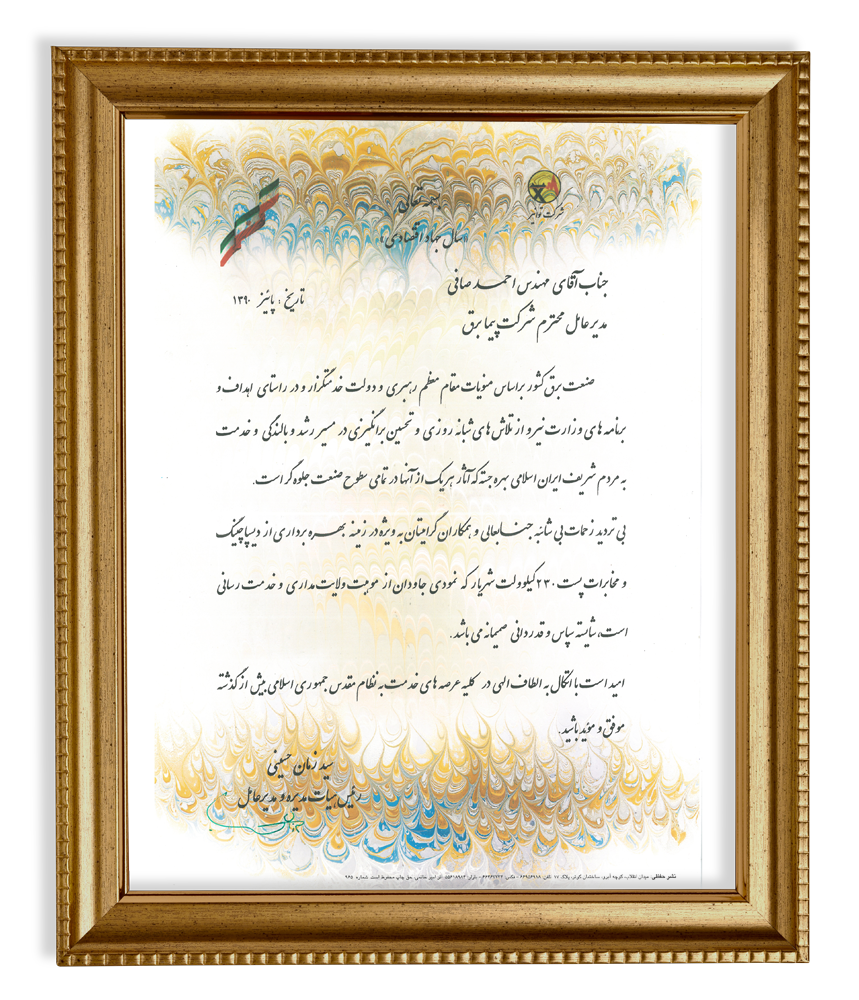 بسمه تعالی
شرکت توانیر
«سال جهاد اقتصادی»
جناب آقای مهندس احمد صافی
تاریخ : پائیز ۱۳۹۰
مدیر عامل محترم شرکت پیما برق
صنعت برق کشور براساس منویات مقام معظم رهبری و دولت خدمتگزار و در راستای اهداف و
برنامه های وزارت نیرو از تلاش های شبانه روزی و تحسین برانگیزی در مسیر رشد و بالندگی و خدمت
به مردم شریف ایران اسلامی بهره جسته که آثار هر یک از آنها در تمامی سطوح صنعت جلوه گر است.
بی تردید زحمات بی شائبه جنابعالی و همکاران گرامیتان به ویژه در زمینه بهره برداری از دیسپاچینگ
و مخابرات پست ۲۳۰ کیلوولت شهریار که نمودی جاودان از موهبت ولایت مداری و خدمت رسانی
است، شایسته سپاس و قدردانی صمیمانه می باشد.
امید است با اتکال به الطاف الهی در کلیه عرصه های خدمت به نظام مقدس جمهوری اسلامی بیش از گذشته
موفق و مؤید باشید.
سید زمان حسینی
رئیس هیات مدیره و مدیرعامل
نشر حفظی: میدان انقلاب، کوچه آبرو، ساختمان کوثر، پلاک ۱۷ تلفن: